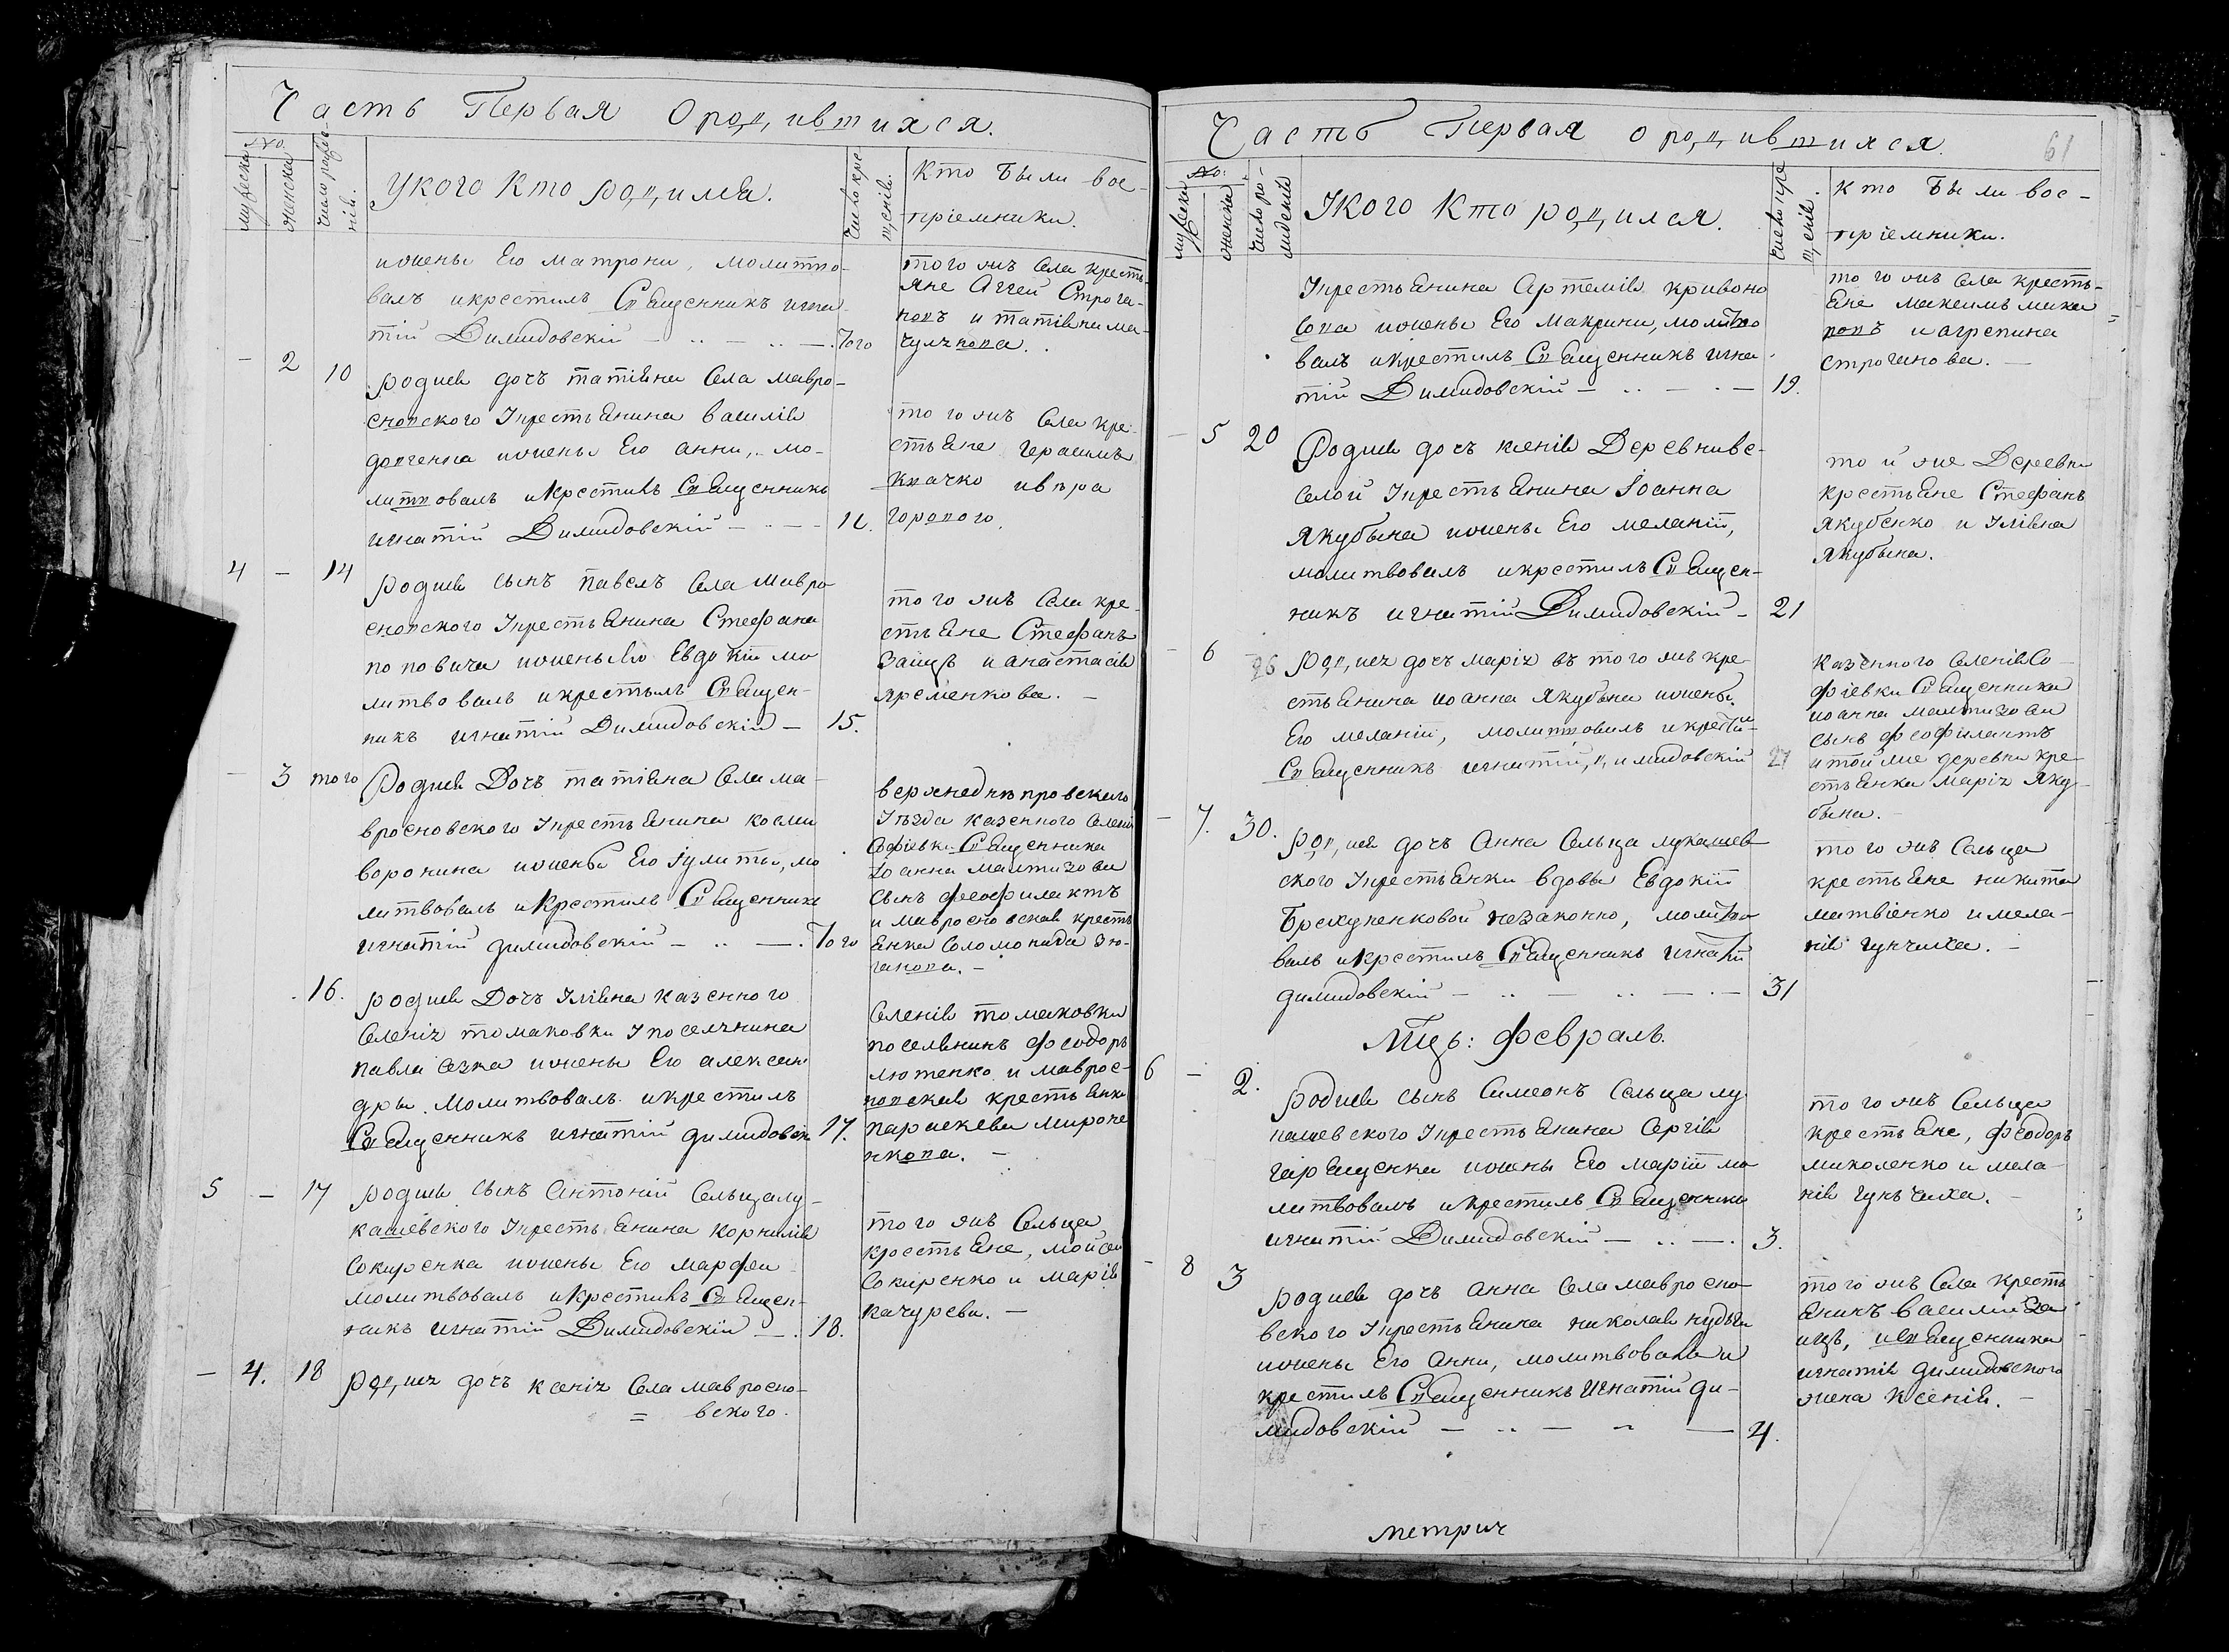 Часть Первая О родившихся.
No.
мужеска
женска
Число рожде-
нія.
У кого кто родился.
Число кре
щенія.
Кто были вос-
пріемники.
и жены Его Матроны, молитво-
валъ и крестилъ Священникъ Игна
тій Димидовскій — .. — .. — . Того
того жъ Села кресть-
яне Аггей Строга-
новъ и татіяна ма-
- 2 10 родися дочь татіяна Села Мавро-
сновского У крестьянина василія
долгенка и жены Его анны, мо-
литвовалъ и крестилъ Священникъ
игнатій Димидовскій — .. — 12.
того жъ Села кре-
стьяне герасимъ
Клачко и вѣра
горового.
4 - 14 родися сынъ павелъ Села Мавро
сновского У крестьянина Стефана
поповича и жены Его Евдокіи мо
литвовалъ и крестилъ Священ-
никъ игнатій Димидовскій — 15.
того жъ Села кре-
стьяне Стефанъ
Заицъ и анастасія
яременкова. —
- 3 того Родися Дочь татіяна Села ма-
вросновского У крестьянина косми
воронина и жены Его Іулиты, мо
литвовалъ и крестилъ Священникъ
игнатій димидовскій — .. — . Того
верхнеднѣпровскаго
Уѣзда казенного Селенія
Софіевки Священника
Іоанна
сынъ феофилактъ
и мавросновская кресть
янка Соломонида Зю-
ганова. —
16. родися Дочь Уліяна казенного
Селенія томаковки У поселянина
павла и жены Его алексан
дры. Молитвовалъ и крестилъ
Священникъ игнатій димидовскій 17.
Селенія томаковки
поселянинъ феодоръ
лютенко и маврос-
новская крестьянка
параскева мироне
нкова. —
5 — 17 родися сынъ Антоній Сельца лу-
кашевского У крестьянина корнилія
Сокиренка и жены Его марфы
молитвовалъ и крестилъ Священ-
никъ игнатій Димидовскій — . 18.
того жъ Сельца
крестьяне, мойсей
Сокиренко и марія
качурева. —
— 4. 18 родися дочь ксенія Села мавросно-
= вского.
Часть Первая о родившихся.
61
No:
мужеска
женска
Число ро-
жденія
У кого кто родился.
Число кре
щенія.
Кто были вос-
пріемники.
У крестьянина Артемія кривоно
сова и жены Его Макрины, молитво
валъ и крестилъ Священникъ игна
тій Димидовскій — .. — . — 19.
того жъ Села кресть-
яне максимъ
и агрепина
строганова. —
— 5 20 Родися дочь ксенія Деревни ве-
селой У крестьянина Іоанна
Якубына и жены Его меланіи,
молитвовалъ и крестилъ Священ-
никъ игнатій Димидовскій — 21
той же Деревни
крестьяне Стефанъ
Якубенко и Уліяна
Якубына.
- 6 26 родися дочь марія въ того жъ кре
стьянина иоанна Якубына и жены
Его меланіи, молитвовалъ и крести
Священникъ игнатій димидовскій 27
казенного Селенія Со-
фіевки Священника
иоанна
сынъ феофилактъ
и той же деревни кре-
стьянка марія Яку-
бына. —
— 7. 30. родися дочь Анна Сельца лукашев
ского У крестьянки вдовы Евдокіи
незаконно, молитво
валъ и крестилъ Священникъ игнатій
димидовскій — .. — .. — . — 31
того жъ Сельца
крестьяне никита
матвіенко и мела-
нія гунчиха. —
Мцъ: февраль.
6 — 2. родися сынъ Симеонъ Сельца лу
кашевского У крестьянина Сергія
гаращенка и жены Его маріи мо
литвовалъ и крестилъ Священникъ
игнатій Димидовскій — .. — . 3.
того жъ Сельца
крестьяне, феодоръ
миколенко и мела-
нія гунчиха. —
- 8 3 родися дочь анна Села мавросно
вского У крестьянина николая
и жены Его Анны, молитвовалъ и
крестилъ Священникъ Игнатій ди-
мидовскій — .. — .. — 4.
того жъ Села кресть
янинъ василій За
ицъ, и Священника
игнатія димидовского
жена Ксенія. —
метрич